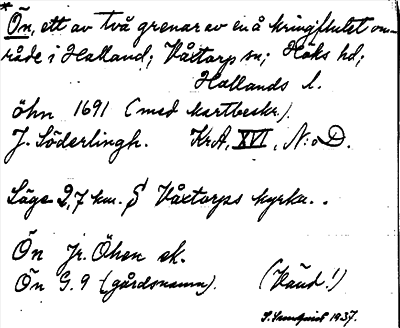 * Ön, ett av två grenar av en å kringflutet om-
råde i Halland; Våxtorp sn; Höks hd;
Hallands l.
öhn 1691 (med kartbeskr.).
J. Söderlingh. KrA, XVI, N:o D.
Läge 2,7 km. S Våxtorps kyrka.
Ön Jr. Öhen ek.
Ön G. 9 (gårdsnamn). (Vänd!)
1937.